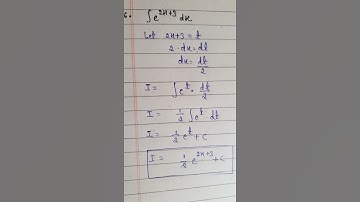 6. ∫e^{2x+3} dx
Let 2x+3 = t
2·dx = dt
dx = dt/2
I = ∫e^t · dt/2
I = 1/2 ∫e^t dt
I = 1/2 e^t + c
I = 1/2 e^{2x+3} + c